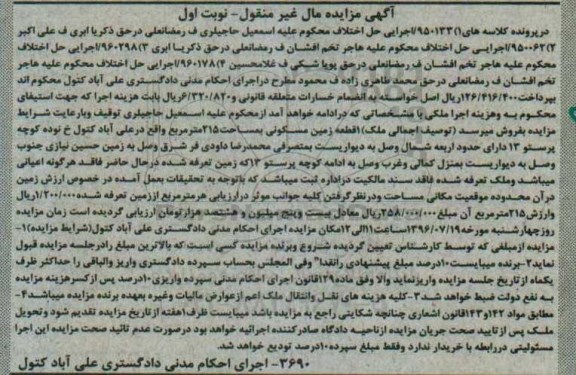 آگهی مزایده مال غیر منقول- نوبت اول
درپرونده کلاسه های۱)۹۵۰۱۳۳/اجرایی حل اختلاف محکوم علیه اسمعیل حاجیلری ف رمضانعلی درحق ذکریا ایری ف علی اکبر
۲)۹۵۰۰۶۲/اجرایی حل اختلاف محکوم علیه هاجر تخم افشان ف رمضانعلی درحق ذکریا ایری ۳)۹۶۰۲۹۸/اجرایی حل اختلاف
محکوم علیه هاجر تخم افشان ف رمضانعلی درحق پویا شبکی ف غلامحسین ۴)۹۶۰۱۷۸/اجرایی حل اختلاف محکوم علیه هاجر
تخم افشان ف رمضانعلی درحق محمد طاهری زاده ف محمود مطرح دراجرای احکام مدنی دادگستری علی آباد کتول محکوم اند
بپرداخت۱۲۶/۴۱۶/۴۰۰ریال اصل خواسته به انضمام خسارات متعلقه قانونی و۶/۳۲۰/۸۲۰ریال بابت هزینه اجرا که جهت استیفای
محکوم به وهزینه اجرا ملکی با مشخصاتی که درادامه خواهد آمد ازمحکوم علیه اسمعیل حاجیلری توقیف وبارعایت شرایط
مزایده بفروش میرسد (توصیف اجمالی ملک)۱قطعه زمین مسکونی بمساحت۲۱۵مترمربع واقع درعلی آباد کتول خ نوده کوچه
پرستو ۱۳ دارای حدود اربعه شمال وصل به دیواریست بمتصرفی محمدرضا داودی فر شرق وصل به زمین حسین نیازی جنوب
وصل به دیواریست بمنزل کمالی وغرب وصل به ادامه کوچه پرستو ۱۳که زمین تعرفه شده درحال حاضر فاقد هرگونه اعیانی
میباشد وملک تعرفه شده فاقد سند مالکیت دراداره ثبت میباشد که باتوجه به تحقیقات بعمل آمده در خصوص ارزش زمین
درآن محدوده موقعیت مکانی مساحت ودرنظرگرفتن کلیه جوانب موثر درارزیابی هرمترمربع اززمین تعرفه شده ۱/۲۰۰/۰۰۰ریال
وارزش۲۱۵مترمربع آن مبلغ۲۵۸/۰۰۰/۰۰۰ریال معادل بیست وپنج میلیون و هشتصد هزارتومان ارزیابی گردیده است زمان مزایده
روزچهارشنبه مورخه۱۳۹۶/۰۷/۱۹ساعت۱۱الی۱۲مکان مزایده اجرای احکام مدنی دادگستری علی آباد کتول(شرایط مزایده)۱-
مزایده ازمبلغی که توسط کارشناس تعیین گردیده شروع وبرنده مزایده کسی است که بالاترین مبلغ رادرجلسه مزایده قبول
نماید۲-برنده میبایست۱۰درصد مبلغ پیشنهادی رانقدا" وفی المجلس بحساب سپرده دادگستری واریز والباقی را حداکثر ظرف
یکماه ازتاریخ جلسه مزایده واریزنماید والا وفق ماده۱۲۹قانون اجرای احکام مدنی سپرده واریزی۱۰درصد پس ازکسرهزینه مزایده
به نفع دولت ضبط خواهد شد۳-کلیه هزینه های نقل وانتقال ملک اعم ازعوارض مالیات وغیره بعهده برنده مزایده میباشد۴-
مطابق مواد ۱۴۲و۱۴۳قانون اشعاری چنانچه شکایتی راجع به مزایده باشد میبایست ظرف۱هفته ازتاریخ مزایده تقدیم شود وتحویل
ملک پس ازتایید صحت جریان مزایده ازناحیه دادگاه صادرکننده اجرائیه خواهد بود درصورت عدم تائید صحت مزایده این اجرا
مسئولیتی دررابطه با خریدار ندارد وفقط مبلغ سپرده۱۰درصد تودیع خواهد شد.
۳۶۹۰- اجرای احکام مدنی دادگستری علی آباد کتول